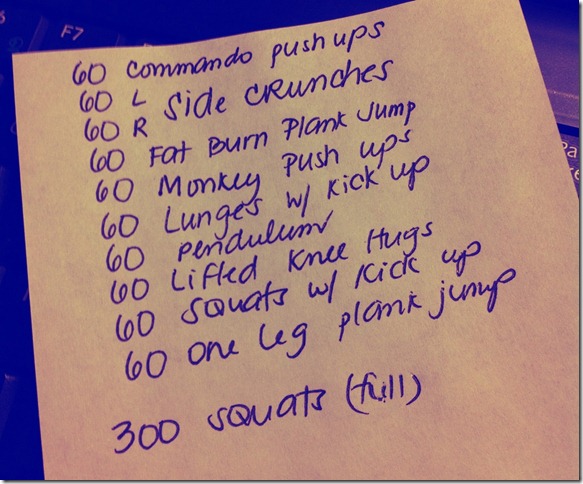 F7
60 commando push ups
60 L side crunches
60 R
60 Fat Burn Plank Jump
60 Monkey push ups
60 Lunges w/ Kick up
60 pendulum
60 Lifted Knee Hugs
60 squats w/ kick up
60 one leg plank jump
300 squats (full)
Pa